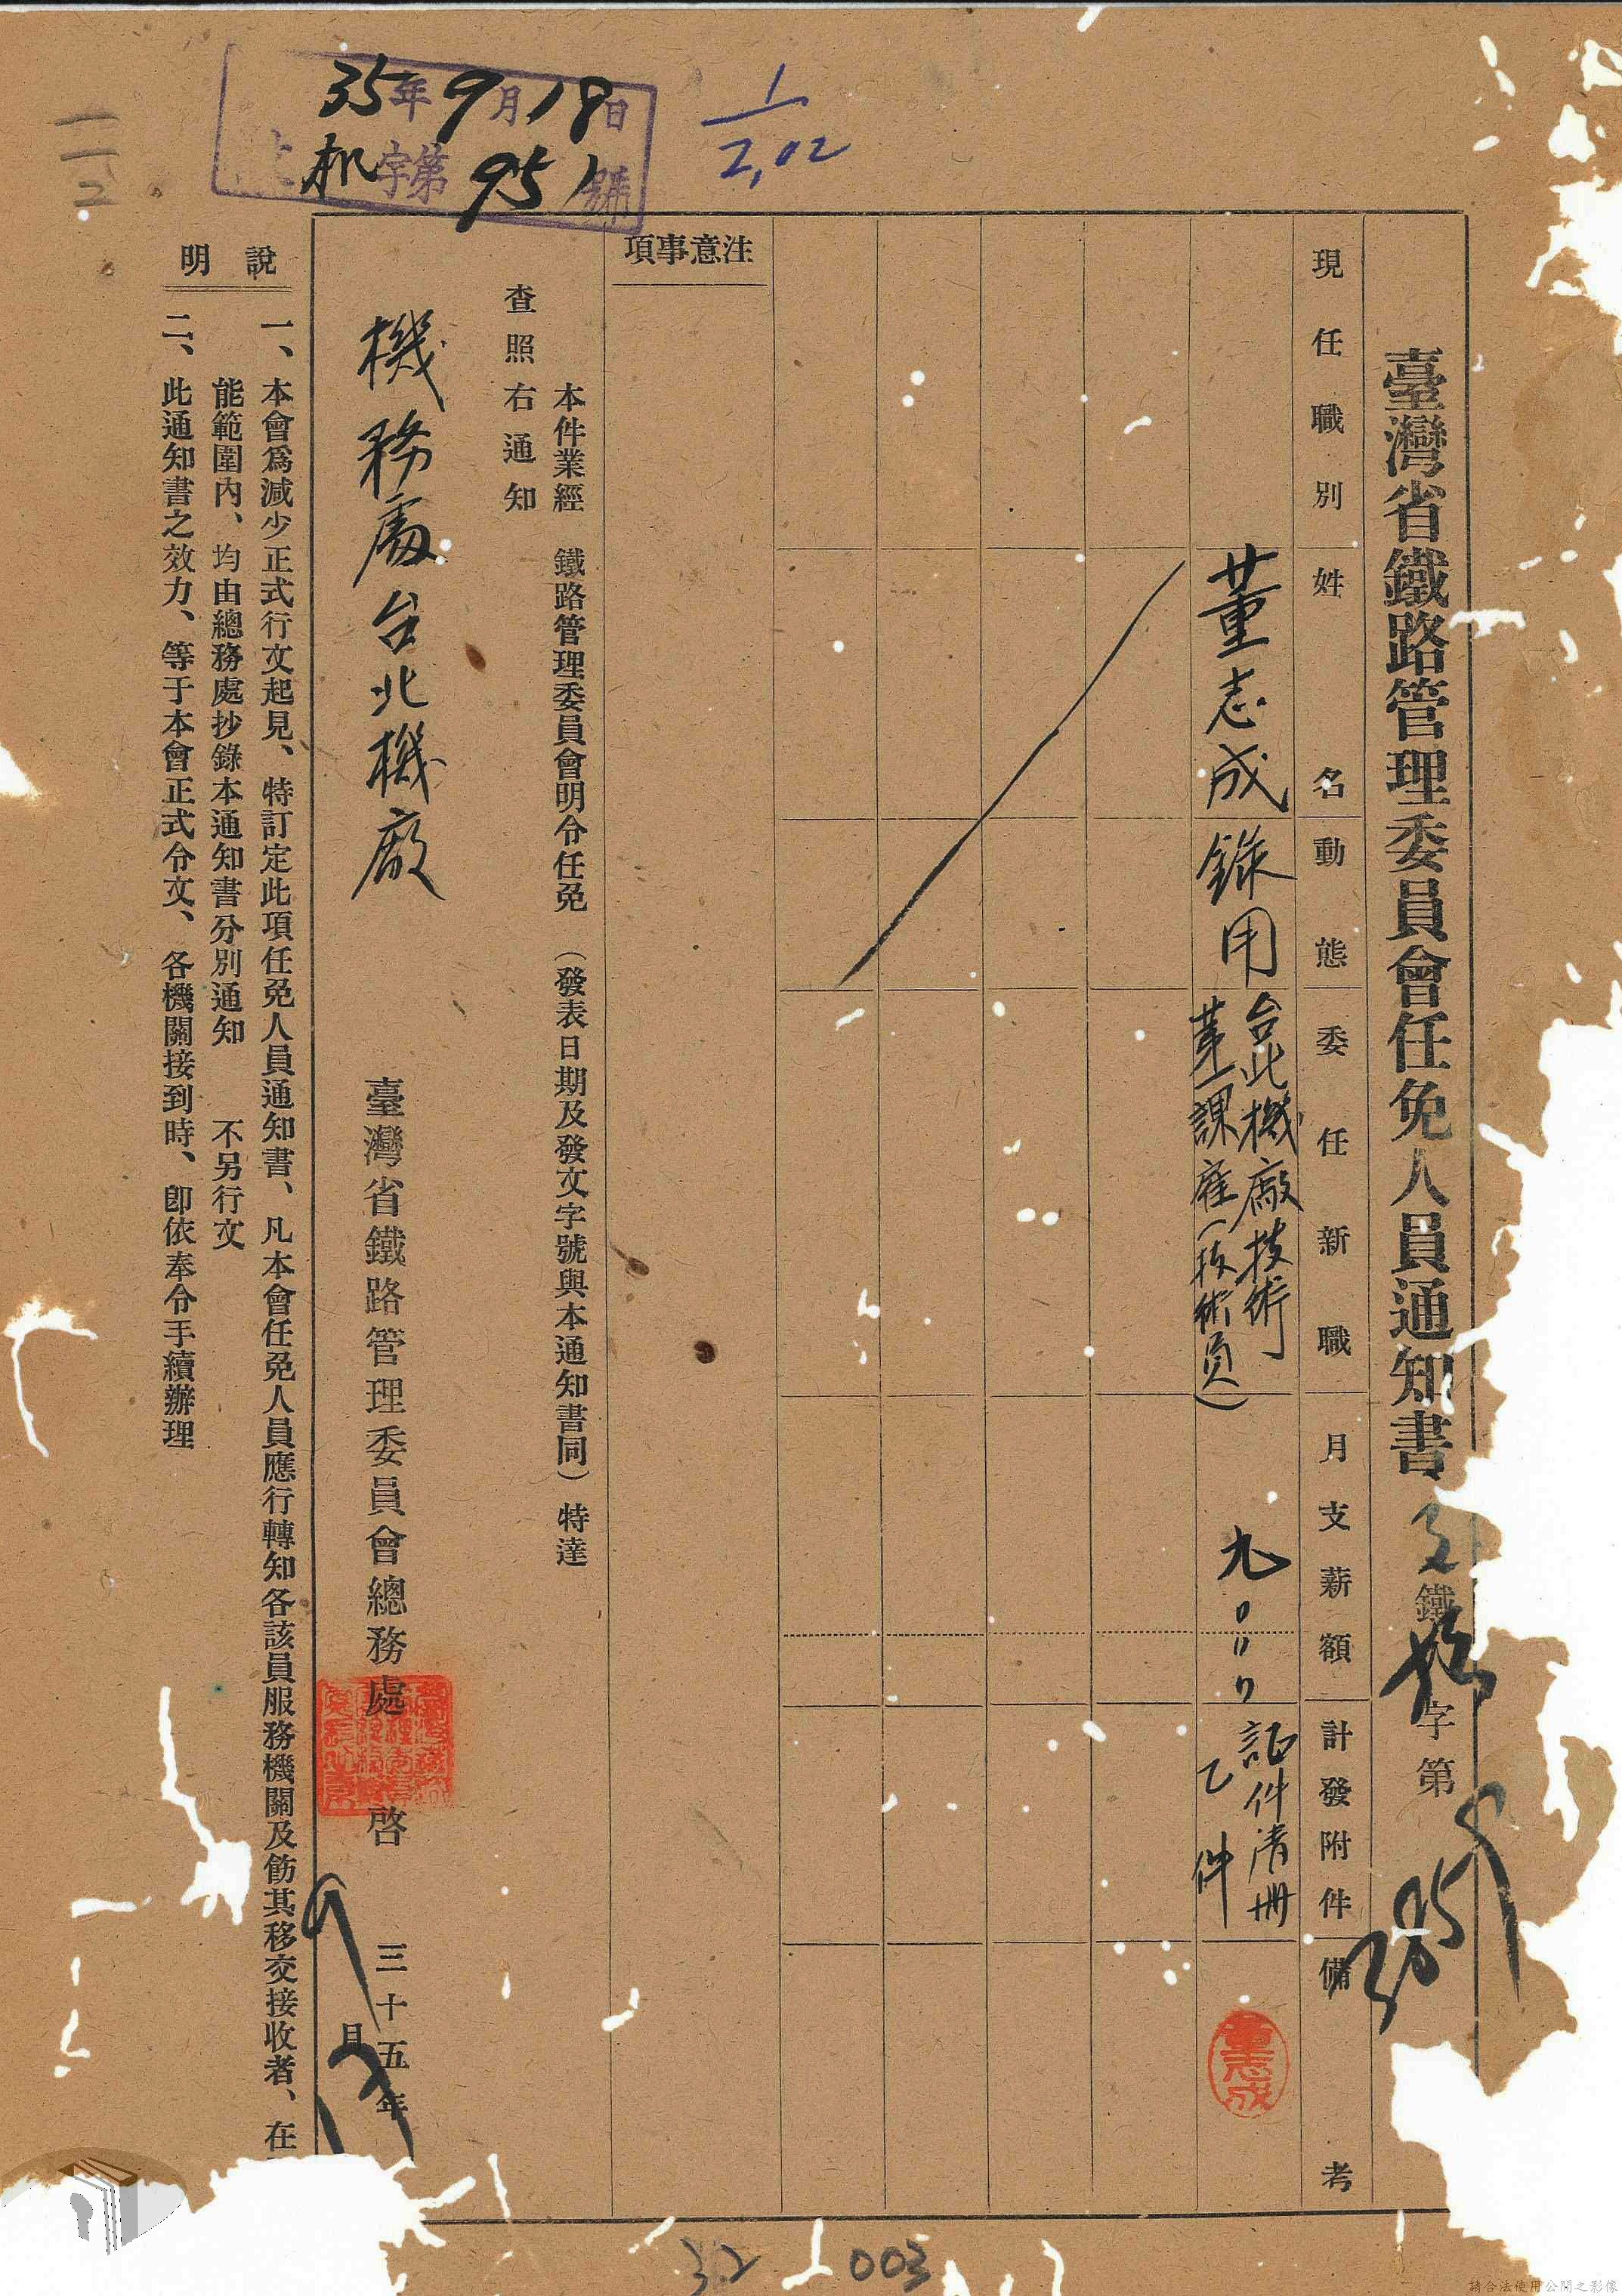 35年9月18日
机字第951號
1
2,02
臺灣省鐵路管理委員會任免人員通知書
鐵 字第
現任職別
姓名
動態
委任新職
月支薪額
計發附件
備考
董志成
錄用
台北機廠技術
第一課雇(技術員)
九〇
証件清冊
乙件
董志成
注意事項
本件業經 鐵路管理委員會明令任免 (發表日期及發文字號與本通知書同) 特達
查照右通知
機務處台北機廠
臺灣省鐵路管理委員會總務處 啓
三十五年
月
說明
一、本會爲減少正式行文起見、特訂定此項任免人員通知書、凡本會任免人員應行轉知各該員服務機關及飭其移交接收者、在
能範圍內、均由總務處抄錄本通知書分別通知 不另行文
二、此通知書之效力、等于本會正式令文、各機關接到時、卽依奉令手續辦理
32
003
請合法使用公開之影像